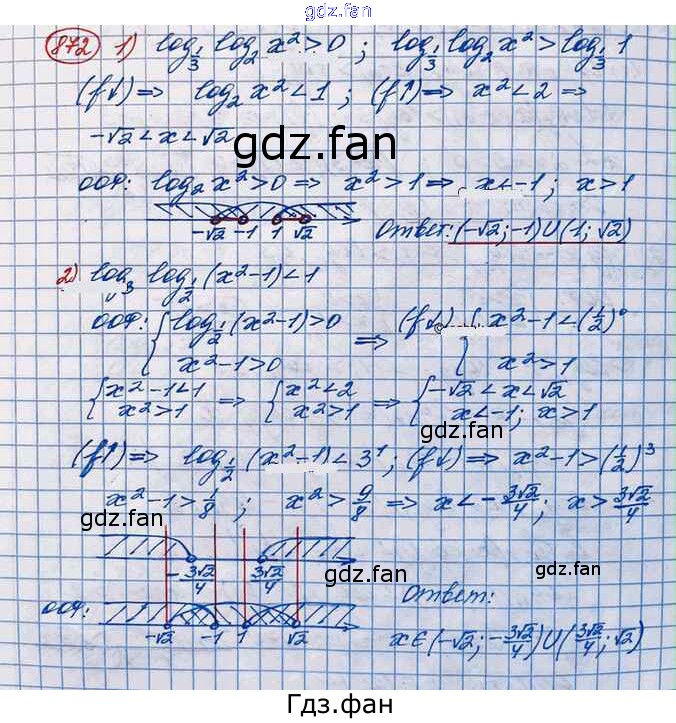 gdz.fan
872 1) log_{1/3} log_2 x² > 0 ; log_{1/3} log_2 x² > log_{1/3} 1
(f↓) ⇒ log_2 x² < 1 ; (f↑) ⇒ x² < 2 ⇒
-√2 < x < √2
gdz.fan
ООФ: log_2 x² > 0 ⇒ x² > 1 ⇒ x < -1 ; x > 1
-√2 -1 1 √2 Ответ: (-√2; -1) ∪ (1; √2)
2) log_3 log_{1/2} (x² - 1) < 1
ООФ: { log_{1/2} (x² - 1) > 0 ⇒ (f↓) { x² - 1 < (1/2)⁰
x² - 1 > 0 x² > 1
{ x² - 1 < 1 ⇒ { x² < 2 ⇒ { -√2 < x < √2
x² > 1 x² > 1 x < -1 ; x > 1
gdz.fan
(f↑) ⇒ log_{1/2} (x² - 1) < 3¹ ; (f↓) ⇒ x² - 1 > (1/2)³
x² - 1 > 1/8 ; x² > 9/8 ⇒ x < -3√2/4 ; x > 3√2/4
gdz.fan
-3√2/4 3√2/4 gdz.fan
ООФ: Ответ:
-√2 -1 1 √2 x ∈ (-√2; -3√2/4) ∪ (3√2/4; √2)
Гдз.фан